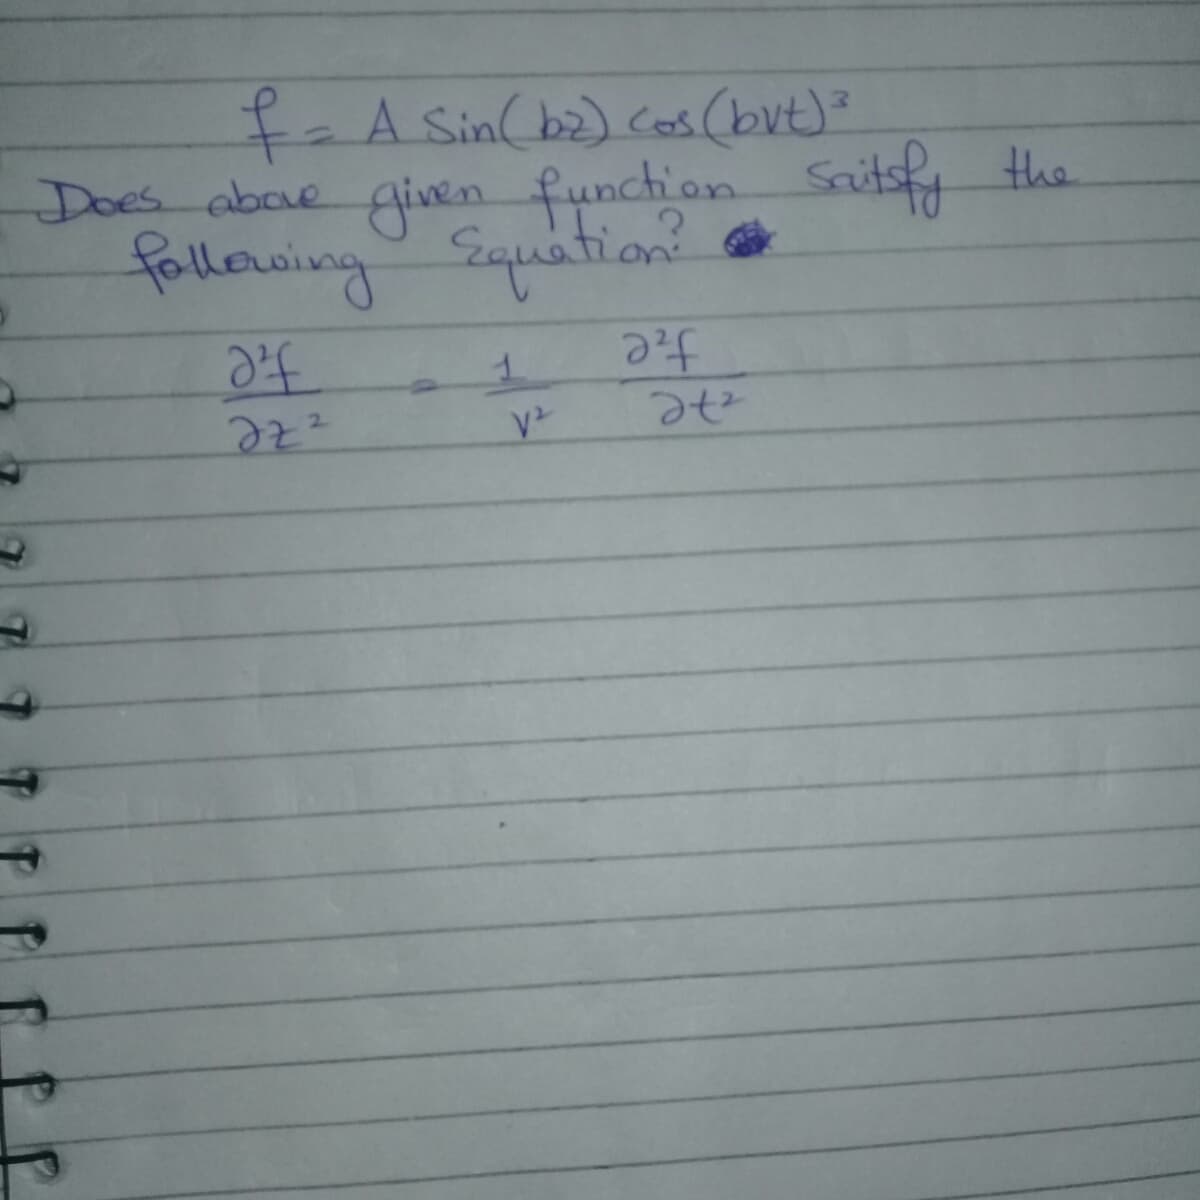 f = A Sin(bz) cos(bvt)³
Does above given function saitsfy the
following Equation?
∂²f/∂z² = 1/v² ∂²f/∂t²